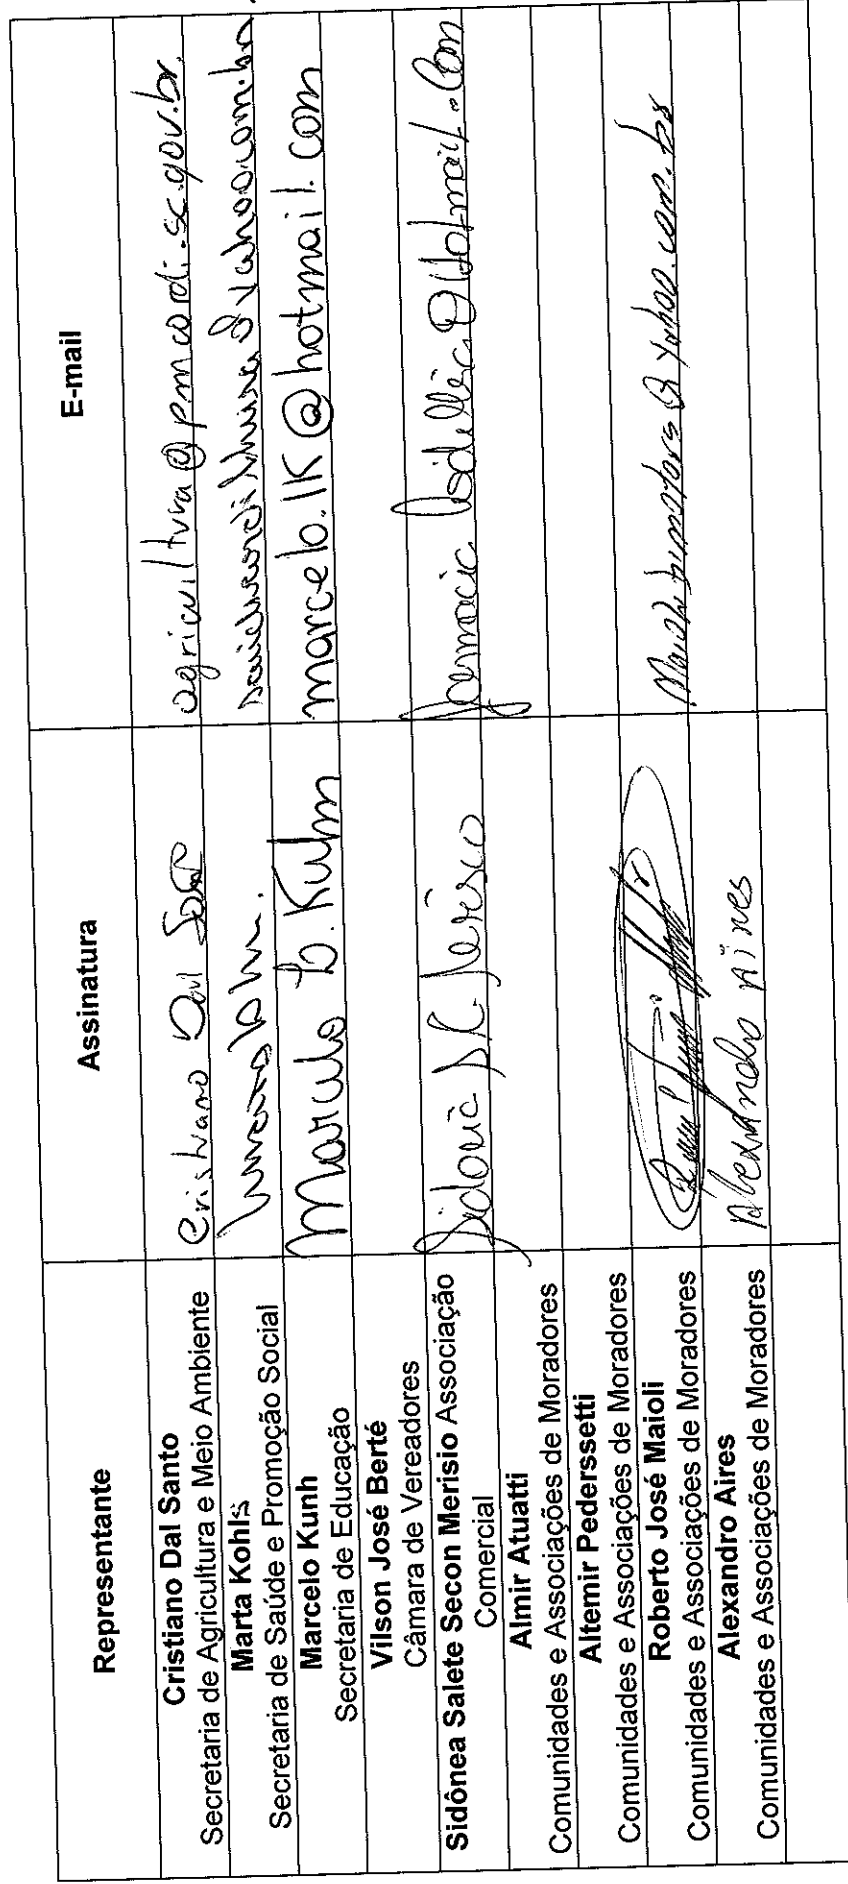 Representante Assinatura E-mail
Cristiano Dal Santo
Secretaria de Agricultura e Meio Ambiente
Cristiano Dal Santo agricultura@pmcordi.sc.gov.br
Marta Kohls
Secretaria de Saúde e Promoção Social
Marcelo Kunh
Secretaria de Educação
Marcelo L. Kuhn marcelo.lK@hotmail.com
Vilson José Berté
Câmara de Vereadores
Sidônea Salete Secon Merisio Associação
Comercial
Almir Atuatti
Comunidades e Associações de Moradores
Altemir Pederssetti
Comunidades e Associações de Moradores
Roberto José Maioli
Comunidades e Associações de Moradores
Alexandro Aires
Comunidades e Associações de Moradores
Alexandro Aires